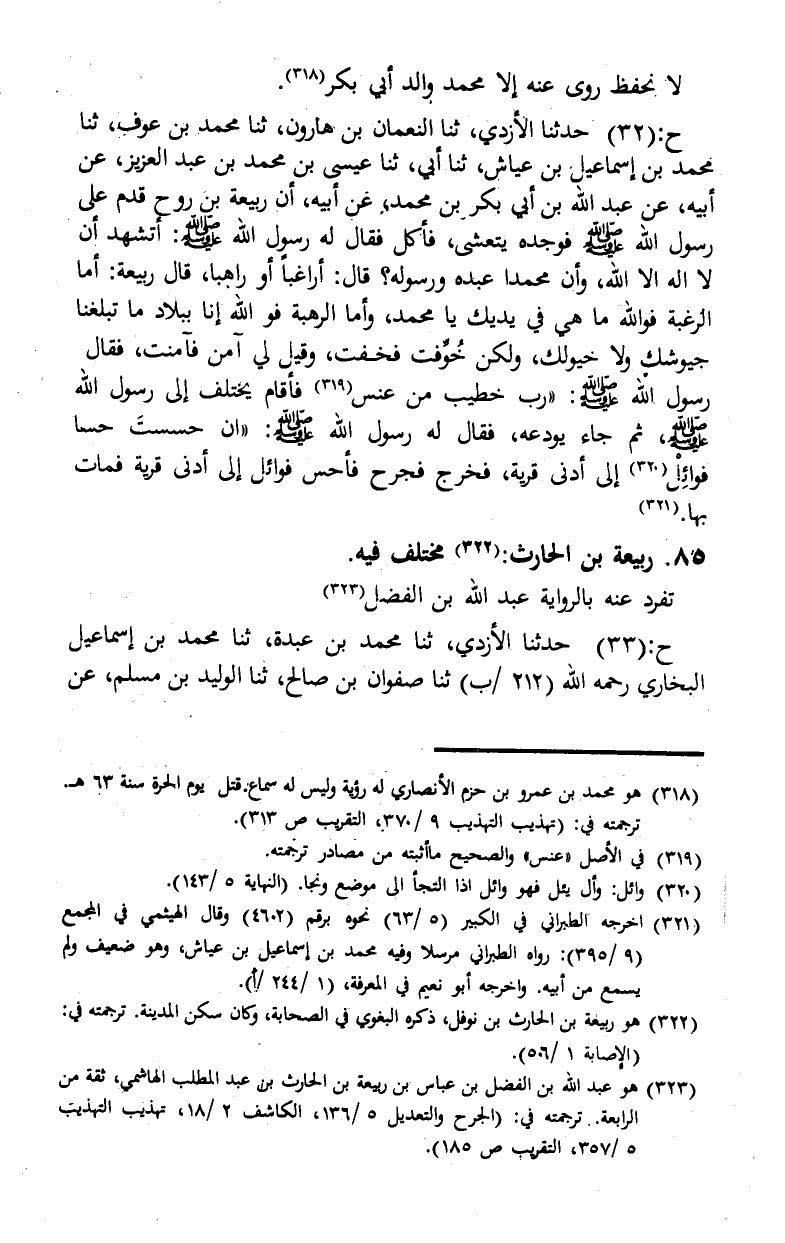 لا نحفظ روى عنه إلا محمد والد أبي بكر(٣١٨).
ح:(٣٢) حدثنا الأزدي، ثنا النعمان بن هارون، ثنا محمد بن عوف، ثنا
محمد بن إسماعيل بن عياش، ثنا أبي، ثنا عيسى بن محمد بن عبد العزيز، عن
أبيه، عن عبد الله بن أبي بكر بن محمد، عن أبيه، أن ربيعة بن روح قدم على
رسول الله ﷺ فوجده يتعشى، فأكل فقال له رسول الله ﷺ: أتشهد أن
لا اله الا الله، وأن محمدا عبده ورسوله؟ قال: أراغباً أو راهبا، قال ربيعة: أما
الرغبة فوالله ما هي في يديك يا محمد، وأما الرهبة فو الله إنا ببلاد ما تبلغنا
جيوشك ولا خيولك، ولكن خُوِّفت فخفت، وقيل لي آمن فآمنت، فقال
رسول الله ﷺ: «رب خطيب من عنس(٣١٩) فأقام يختلف إلى رسول الله
ﷺ، ثم جاء يودعه، فقال له رسول الله ﷺ: «ان حسستَ حسا
فوائِلْ(٣٢٠) إلى أدنى قرية، فخرج فجرح فأحس فوائل إلى أدنى قرية فمات
بها.(٣٢١)
٨٥. ربيعة بن الحارث:(٣٢٢) مختلف فيه.
تفرد عنه بالرواية عبد الله بن الفضل(٣٢٣)
ح:(٣٣) حدثنا الأزدي، ثنا محمد بن عبدة، ثنا محمد بن إسماعيل
البخاري رحمه الله (٢١٢ /ب) ثنا صفوان بن صالح، ثنا الوليد بن مسلم، عن
(٣١٨) هو محمد بن عمرو بن حزم الأنصاري له رؤية وليس له سماع.قتل يوم الحرة سنة ٦٣ هـ.
ترجمته في: (تهذيب التهذيب ٩ /٣٧٠، التقريب ص ٣١٣).
(٣١٩) في الأصل «عنس» والصحيح ماأثبته من مصادر ترجمته.
(٣٢٠) وائل: وأل يئل فهو وائل اذا التجأ الى موضع ونجا. (النهاية ٥ /١٤٣).
(٣٢١) اخرجه الطبراني في الكبير (٥ /٦٣) نحوه برقم (٤٦٠٢) وقال الهيثمي في المجمع
(٩ /٣٩٥): رواه الطبراني مرسلا وفيه محمد بن إسماعيل بن عياش، وهو ضعيف ولم
يسمع من أبيه. واخرجه أبو نعيم في المعرفة، (١ /٢٤٤ /أ).
(٣٢٢) هو ربيعة بن الحارث بن نوفل، ذكره البغوي في الصحابة، وكان سكن المدينة. ترجمته في:
(الإصابة ١ /٥٠٦).
(٣٢٣) هو عبد الله بن الفضل بن عباس بن ربيعة بن الحارث بن عبد المطلب الهاشمي، ثقة من
الرابعة. ترجمته في: (الجرح والتعديل ٥ /١٣٦، الكاشف ٢ /١٨، تهذيب التهذيب
٥ /٣٥٧، التقريب ص ١٨٥).